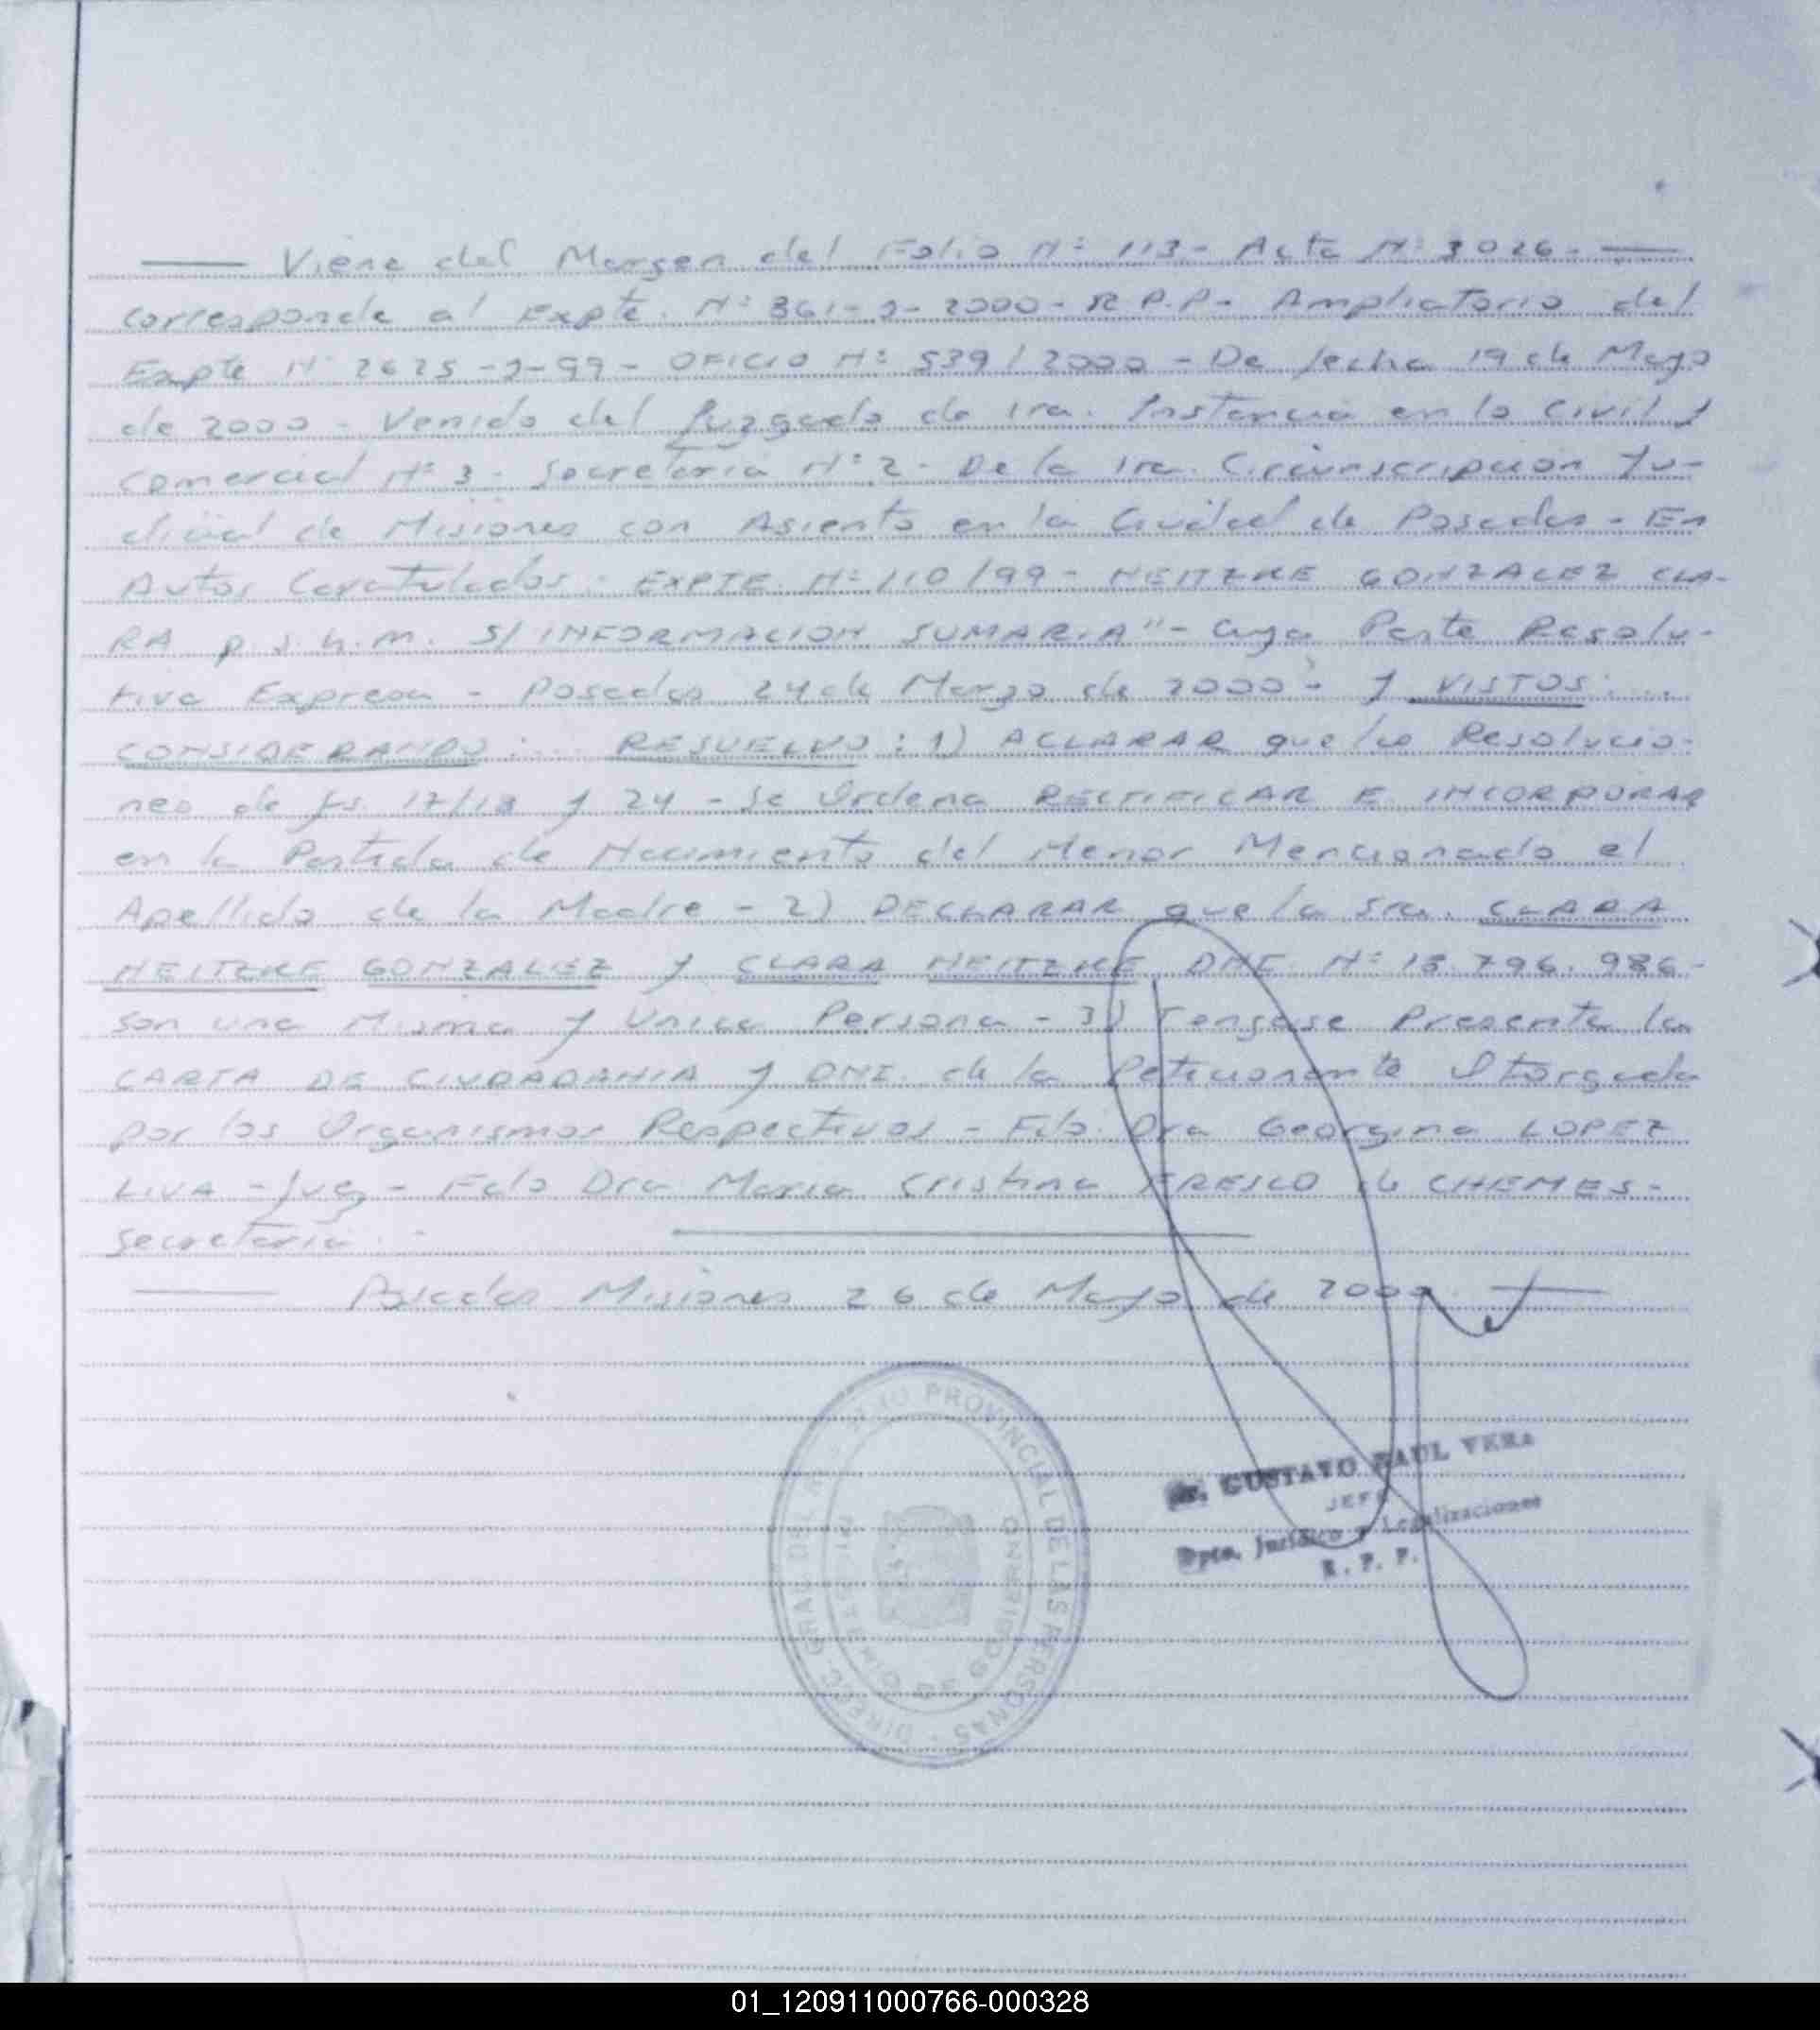 Viene del Margen del Folio Nº 113- Acta Nº 3026-
corresponde al Expte. Nº 361-J-2000- R.P.P- Ampliatorio del
Expte Nº 2625-J-99- OFICIO Nº 539/2000 - De fecha 19 de Mayo
de 2000 - Venido del Juzgado de 1ra. Instancia en lo Civil y
comercial Nº 3 - Secretaria Nº 2 - De la 1ra. Circunscripcion Ju-
dicial de Misiones con Asiento en la Ciudad de Posadas - En
Autos Caratulados: EXPTE. Nº 110/99- NEITZKE GONZALEZ CLA-
RA p.s.h.m. S/ INFORMACION SUMARIA"- Cuya Parte Resolu-
tiva Expresa - Posadas 24 de Marzo de 2000 - Y VISTOS: ...
CONSIDERANDO: ... RESUELVO: 1) ACLARAR que la Resolucio-
nes de fs. 17/18 y 24 - Se Ordena RECTIFICAR E INCORPORAR
en la Partida de Nacimiento del Menor Mencionado el
Apellido de la Madre - 2) DECLARAR que la Sra. CLARA
NEITZKE GONZALEZ y CLARA NEITZKE DNI. Nº 18.796.986-
son una Misma y Unica Persona - 3) Tengase Presente la
CARTA DE CIUDADANIA y DNI. de la Peticionante Otorgada
por los Organismos Respectivos - Fdo. Dra Georgina LOPEZ
LIVA - Juez - Fdo Dra Maria Cristina FRESCO de CHEMES-
Secretaria.-
Posadas Misiones 26 de Mayo de 2000.
PROVINCIAL DE LAS PERSONAS - DIREC. GRAL. DEL
GUSTAVO RAUL VERA
JEFE
Dpto. Jurídico y Legalizaciones
R. P. P.
01_120911000766-000328